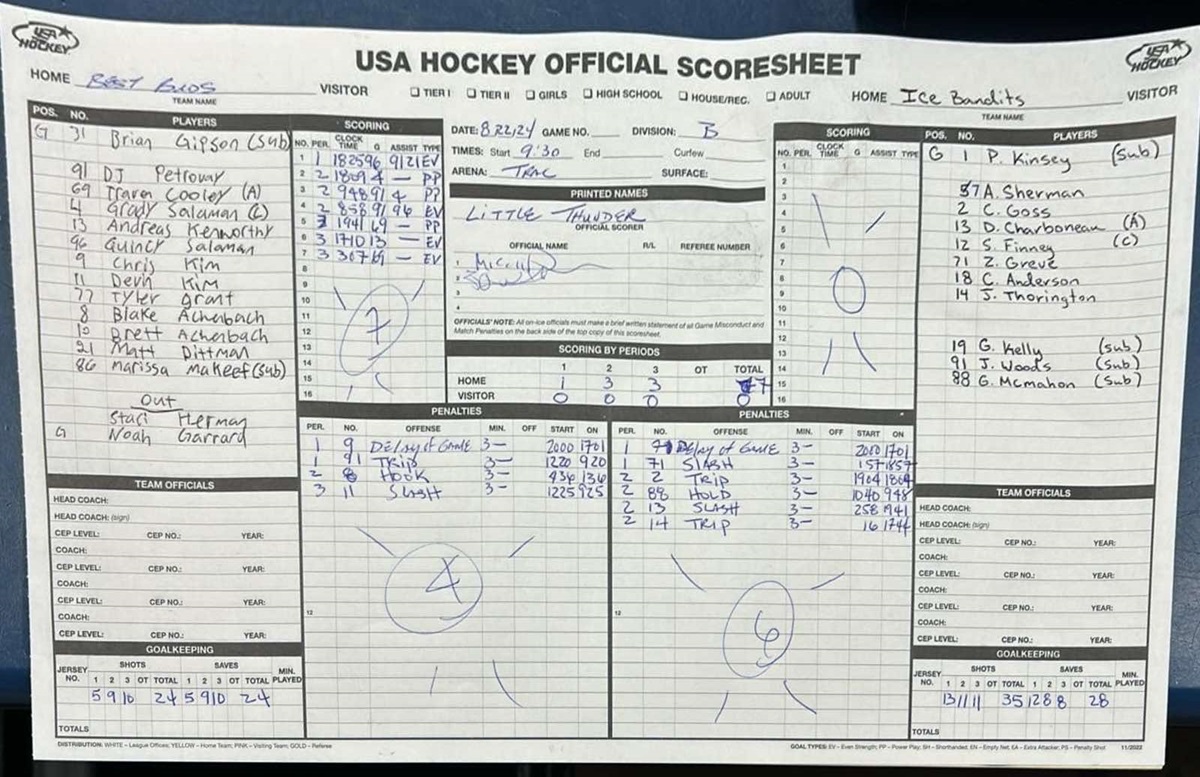 USA HOCKEY
USA HOCKEY OFFICIAL SCORESHEET
USA HOCKEY
HOME BEST BUDS VISITOR
TEAM NAME
☐ TIER I ☐ TIER II ☐ GIRLS ☐ HIGH SCHOOL ☐ HOUSE/REC. ☐ ADULT
HOME Ice Bandits VISITOR
TEAM NAME
POS. NO. PLAYERS
G 31 Brian Gipson (sub)
91 DJ Petroway
69 Traven Cooley (A)
4 Grady Salaman (C)
13 Andreas Kenworthy
96 Quincy Salaman
9 Chris Kim
11 Devin Kim
77 Tyler Grant
8 Blake Achenbach
10 Brett Achenbach
21 Matt Dittman
86 Marissa Makeef (sub)
Out
Staci Herman
G Noah Garrard
SCORING
NO. PER. CLOCK TIME G ASSIST TYPE
1 1 1825 96 9/21 EV
2 2 1809 4 — PP
3 2 948 91 4 PP
4 2 858 91 96 EV
5 3 1941 69 — PP
6 3 1710 13 — EV
7 3 307 69 — EV
8
9
10
11
12
13
14
15
16
7
DATE: 8.22.24 GAME NO. DIVISION: B
TIMES: Start 9:30 End Curfew
ARENA: TRAC SURFACE:
PRINTED NAMES
LITTLE THUNDER
OFFICIAL SCORER
OFFICIAL NAME R/L REFEREE NUMBER
1
2
3
4
OFFICIALS' NOTE: All on-ice officials must make a brief written statement of all Game Misconduct and
Match Penalties on the back side of the top copy of this scoresheet.
SCORING BY PERIODS
1 2 3 OT TOTAL
HOME 1 3 3 7
VISITOR 0 0 0 0
SCORING
NO. PER. CLOCK TIME G ASSIST TYPE
1
2
3
4
5
6
7
8
9
10
11
12
13
14
15
16
0
POS. NO. PLAYERS
G 1 P. Kinsey (sub)
57 A. Sherman
2 C. Goss
13 D. Charboneau (A)
12 S. Finney (C)
71 Z. Greve
18 C. Anderson
14 J. Thorington
19 G. Kelly (sub)
91 J. Woods (sub)
88 G. McMahon (sub)
PENALTIES
PER. NO. OFFENSE MIN. OFF START ON
1 9 DELAY of GAME 3— 2000 1701
1 91 TRIP 3— 1220 920
2 8 HOOK 3— 436 136
3 11 SLASH 3— 1225 925
12
4
PENALTIES
PER. NO. OFFENSE MIN. OFF START ON
1 71 DELAY of GAME 3— 2000 1701
1 71 SLASH 3— 157 1857
2 2 TRIP 3— 1904 1804
2 88 HOLD 3— 1040 948
2 13 SLASH 3— 258 1941
2 14 TRIP 3— 16 1744
12
6
TEAM OFFICIALS
HEAD COACH:
HEAD COACH: (sign)
CEP LEVEL: CEP NO.: YEAR:
COACH:
CEP LEVEL: CEP NO.: YEAR:
COACH:
CEP LEVEL: CEP NO.: YEAR:
COACH:
CEP LEVEL: CEP NO.: YEAR:
GOALKEEPING
JERSEY NO. SHOTS SAVES MIN. PLAYED
1 2 3 OT TOTAL 1 2 3 OT TOTAL
5 9 10 24 5 9 10 24
TOTALS
TEAM OFFICIALS
HEAD COACH:
HEAD COACH: (sign)
CEP LEVEL: CEP NO.: YEAR:
COACH:
CEP LEVEL: CEP NO.: YEAR:
COACH:
CEP LEVEL: CEP NO.: YEAR:
COACH:
CEP LEVEL: CEP NO.: YEAR:
GOALKEEPING
JERSEY NO. SHOTS SAVES MIN. PLAYED
1 2 3 OT TOTAL 1 2 3 OT TOTAL
13 11 11 35 12 8 8 28
TOTALS
DISTRIBUTION: WHITE – League Offices; YELLOW – Home Team; PINK – Visiting Team; GOLD – Referee
GOAL TYPES: EV – Even Strength, PP – Power Play, SH – Shorthanded, EN – Empty Net, EA – Extra Attacker, PS – Penalty Shot 11/2022